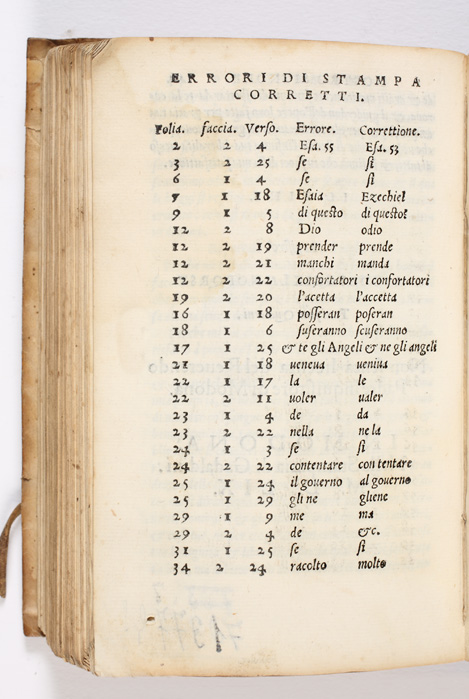 ERRORI DI STAMPA
CORRETTI.
Folia. faccia. Verso. Errore. Correttione.
2 2 4 Esa. 55 Esa. 53
3 2 25 se si
6 1 4 se si
7 1 18 Esaia Ezechiel
9 1 5 di questo di questo?
12 2 8 Dio odio
12 2 19 prender prende
12 2 21 manchi manda
12 2 22 confortatori i confortatori
19 2 20 l'acetta l'accetta
16 1 18 posseran poseran
18 1 6 suseranno scuseranno
17 1 25 & te gli Angeli & ne gli angeli
21 1 18 ueneua ueniua
22 1 17 la le
22 2 11 uoler ualer
23 1 4 de da
23 2 22 nella ne la
24 1 3 se si
24 2 22 contentare con tentare
25 1 24 il gouerno al gouerno
25 1 29 gli ne gliene
29 1 9 me ma
29 2 4 de &c.
31 1 25 se si
34 2 24 racolto molto